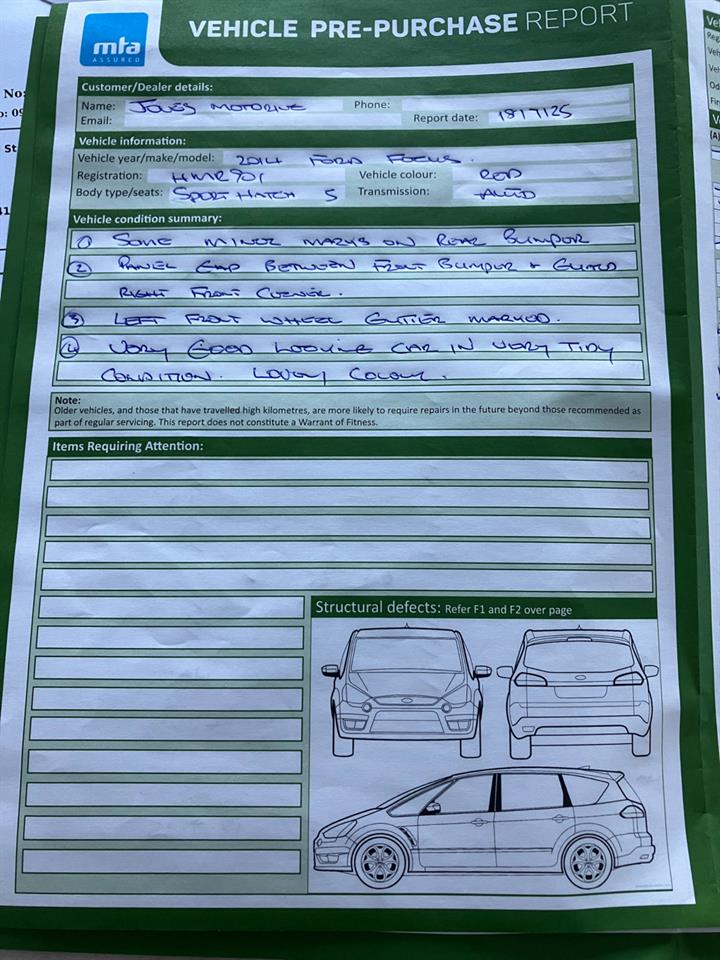 mta
ASSURED
VEHICLE PRE-PURCHASE REPORT
Customer/Dealer details:
Name: JONES MOTORING Phone:
Email: Report date: 18/7/25
Vehicle information:
Vehicle year/make/model: 2014 FORD FOCUS.
Registration: HMR901 Vehicle colour: RED
Body type/seats: SPORT HATCH 5 Transmission: AUTO
Vehicle condition summary:
① SOME MINOR MARKS ON REAR BUMPER
② PANEL GAP BETWEEN FRONT BUMPER + GUARD
RIGHT FRONT CORNER.
③ LEFT FRONT WHEEL GUTTER MARKED.
④ VERY GOOD LOOKING CAR IN VERY TIDY
CONDITION. LOVELY COLOUR.
Note:
Older vehicles, and those that have travelled high kilometres, are more likely to require repairs in the future beyond those recommended as
part of regular servicing. This report does not constitute a Warrant of Fitness.
Items Requiring Attention:
Structural defects: Refer F1 and F2 over page
No:
St
Reg
Od
Fitn
(A)